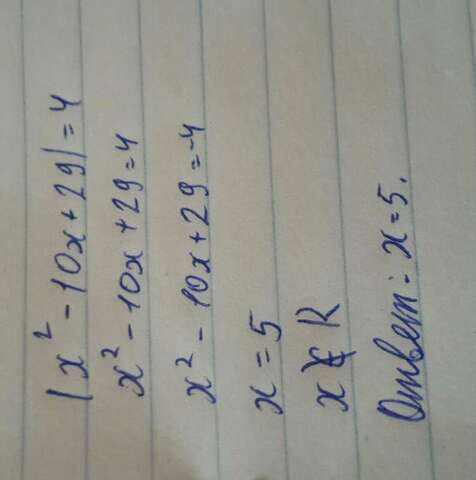 |x² - 10x + 29| = 4
x² - 10x + 29 = 4
x² - 10x + 29 = -4
x = 5
x ∉ R
Ответ: x = 5.